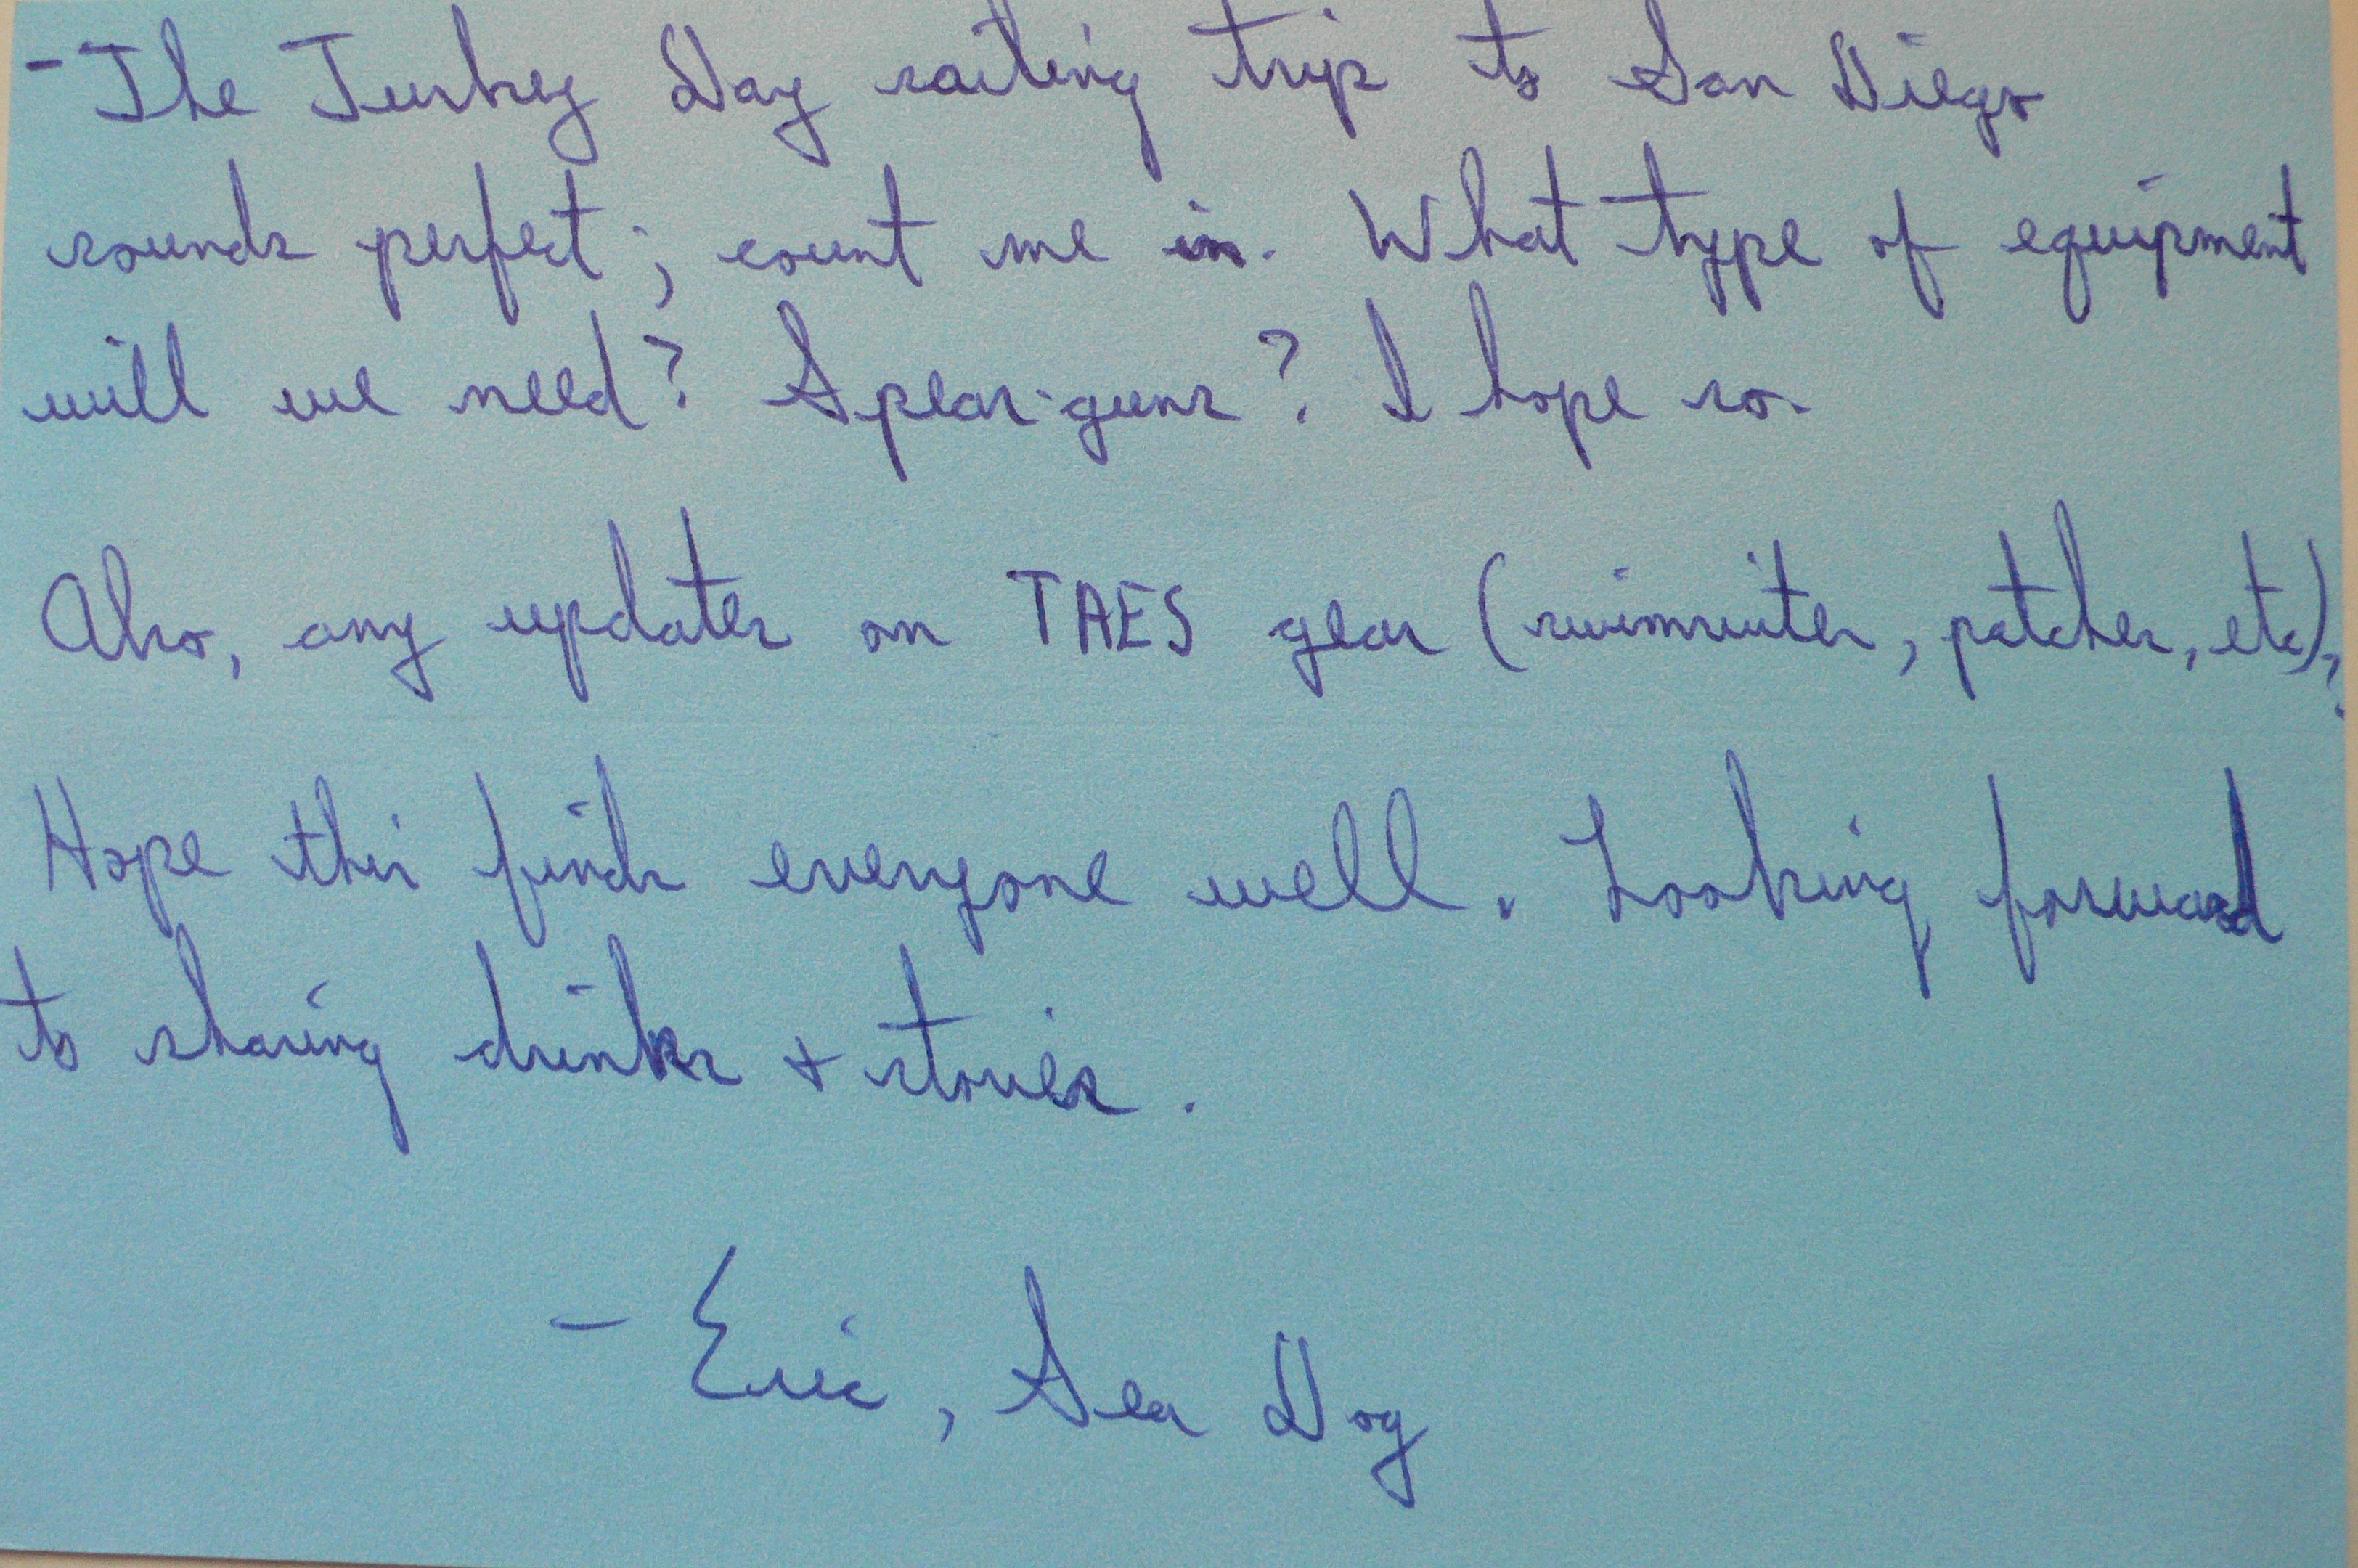 - The Turkey Day sailing trip to San Diego
sounds perfect; count me in. What type of equipment
will we need? Spear-guns? I hope so.
Also, any updates on TAES gear (swimsuites, patches, etc)?
Hope this finds everyone well. Looking forward
to sharing drinks + stories.
- Eric, Sea Dog